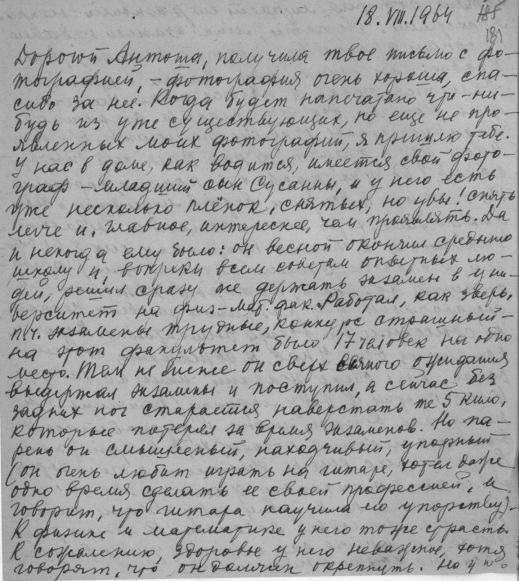 18.VIII.1964
185
181
Дорогой Антоша, получила твое письмо с фо-
тографией, – фотография очень хороша, спа-
сибо за нее. Когда будет напечатано что-ни-
будь из уже существующих, но еще не про-
явленных моих фотографий, я пришлю тебе.
У нас в доме, как водится, имеется свой фото-
граф – младший сын Сусанны, и у него есть
уже несколько плёнок, снятых, но увы! снять
легче и, главное, интереснее, чем проявлять. Да
и некогда ему было: он весной окончил среднюю
школу и, вопреки всем советам опытных лю-
дей, решил сразу же держать экзамен в уни-
верситет на физ-мат. фак. Работал, как зверь,
п.ч. экзамены трудные, конкурс страшный –
на этот факультет было 17 человек на одно
место. Тем не менее он сверх всякого ожидания
выдержал экзамены и поступил, а сейчас без
задних ног старается наверстать те 5 кило,
которые потерял за время экзаменов. Но па-
рень он смышленый, находчивый, упорный
(он очень любит играть на гитаре, хотел даже
одно время сделать ее своей профессией, и
говорит, что гитара научила его упорству).
К физике и математике у него тоже страсть.
К сожалению, здоровье у него неважное, хотя
говорят, что он должен окрепнуть. Но у не-